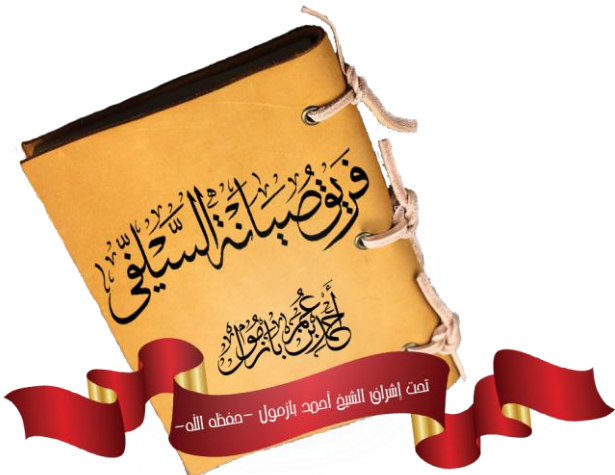 فريق صُيانة السَّلفيِّ
أحمد بن عُمر بازمُول
تحت إشراف الشيخ أحمد بازمول -حفظه الله-